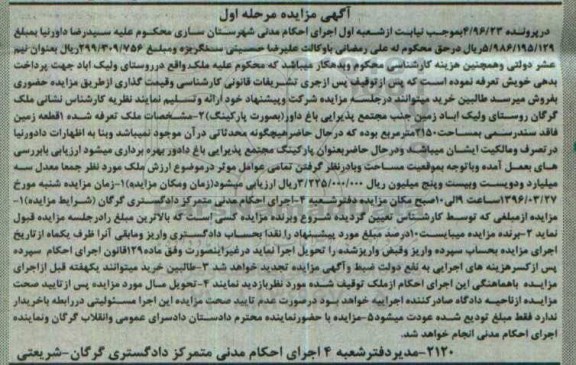 آگهی مزایده مرحله اول
درپرونده ۴/۹۶/۲۳بموجب نیابت ازشعبه اول اجرای احکام مدنی شهرستان ساری محکوم علیه سیدرضا داورنیا بمبلغ
۵/۹۸۶/۱۹۵/۱۲۹ریال درحق محکوم له علی رمضانی باوکالت علیرضا حسینی سنگریزه ومبلغ ۲۹۹/۳۰۹/۷۵۶ریال بعنوان نیم
عشر دولتی وهمچنین هزینه کارشناسی محکوم وبدهکار میباشد که محکوم علیه ملک واقع درروستای ولیک اباد جهت پرداخت
بدهی خویش تعرفه نموده است که پس ازتوقیف پس ازجری تشریفات قانونی کارشناسی وقیمت گذاری ازطریق مزایده حضوری
بفروش میرسد طالبین خرید میتوانند درجلسه مزایده شرکت وپیشنهاد خود ارائه وتسلیم نمایند نظریه کارشناس نشانی ملک
گرگان روستای ولیک اباد زمین جنب مجتمع پذیرایی باغ داور(بصورت پارکینگ)۲-مشخصات ملک تعرفه شده ۱قطعه زمین
فاقد سندرسمی بمساحت۲۱۵۰مترمربع بوده که درحال حاضرهیچگونه محدثاتی درآن موجود نمیباشد وبنا به اظهارات داورنیا
درتصرف ومالکیت ایشان میباشد ودرحال حاضربعنوان پارکینگ مجتمع پذیرایی باغ داور بهره برداری میشود ارزیابی بابررسی
های بعمل آمده وباتوجه بموقعیت مساحت وبادرنظر گرفتن تمامی عوامل موثر درموضوع ارزش ملک مورد نظر جمعا معدل سه
میلیارد ودویست وبیست وپنج میلیون ریال ۳/۲۲۵/۰۰۰/۰۰۰ریال ارزیابی میشود(زمان ومکان مزایده)۱-زمان مزایده شنبه مورخ
۱۳۹۶/۰۳/۲۷ساعت ۹الی ۱۰صبح مکان مزایده دفترشعبه ۴-اجرای احکام مدنی متمرکز دادگستری گرگان (شرایط مزایده)۱-
مزایده ازمبلغی که توسط کارشناس تعیین گردیده شروع وبرنده مزایده کسی است که بالاترین مبلغ رادرجلسه مزایده قبول
نماید ۲-برنده مزایده میبایست۱۰درصد مبلغ مورد پیشنهاد را نقدا بحساب دادگستری واریز ومابقی آنرا ظرف یکماه ازتاریخ
اجرای مزایده بحساب سپرده واریز وقبض واریزشده را تحویل اجرا نماید درغیراینصورت وفق ماده ۱۲۹قانون اجرای احکام سپرده
پس ازکسرهزینه های اجرایی به نفع دولت ضبط وآگهی مزایده تجدید خواهد شد ۳-طالبین خرید میتوانند یکهفته قبل ازاجرای
مزایده باهماهنگی این اجرای احکام ازملک توقیف شده مورد نظربازدید نمایند ۴-تحویل مال مورد مزایده پس ازتایید صحت
مزایده ازناحیه دادگاه صادرکننده اجراییه خواهد بود درصورت عدم تایید صحت مزایده این اجرا مسئولیتی دررابطه باخریدار
ندارد فقط مبلغ تودیع شده عودت میشود۵-مزایده با حضورنماینده محترم دادستان دادسرای عمومی وانقلاب گرگان ونماینده
اجرای احکام مدنی انجام خواهد شد.
۲۱۲۰-مدیردفترشعبه ۴ اجرای احکام مدنی متمرکز دادگستری گرگان-شریعتی